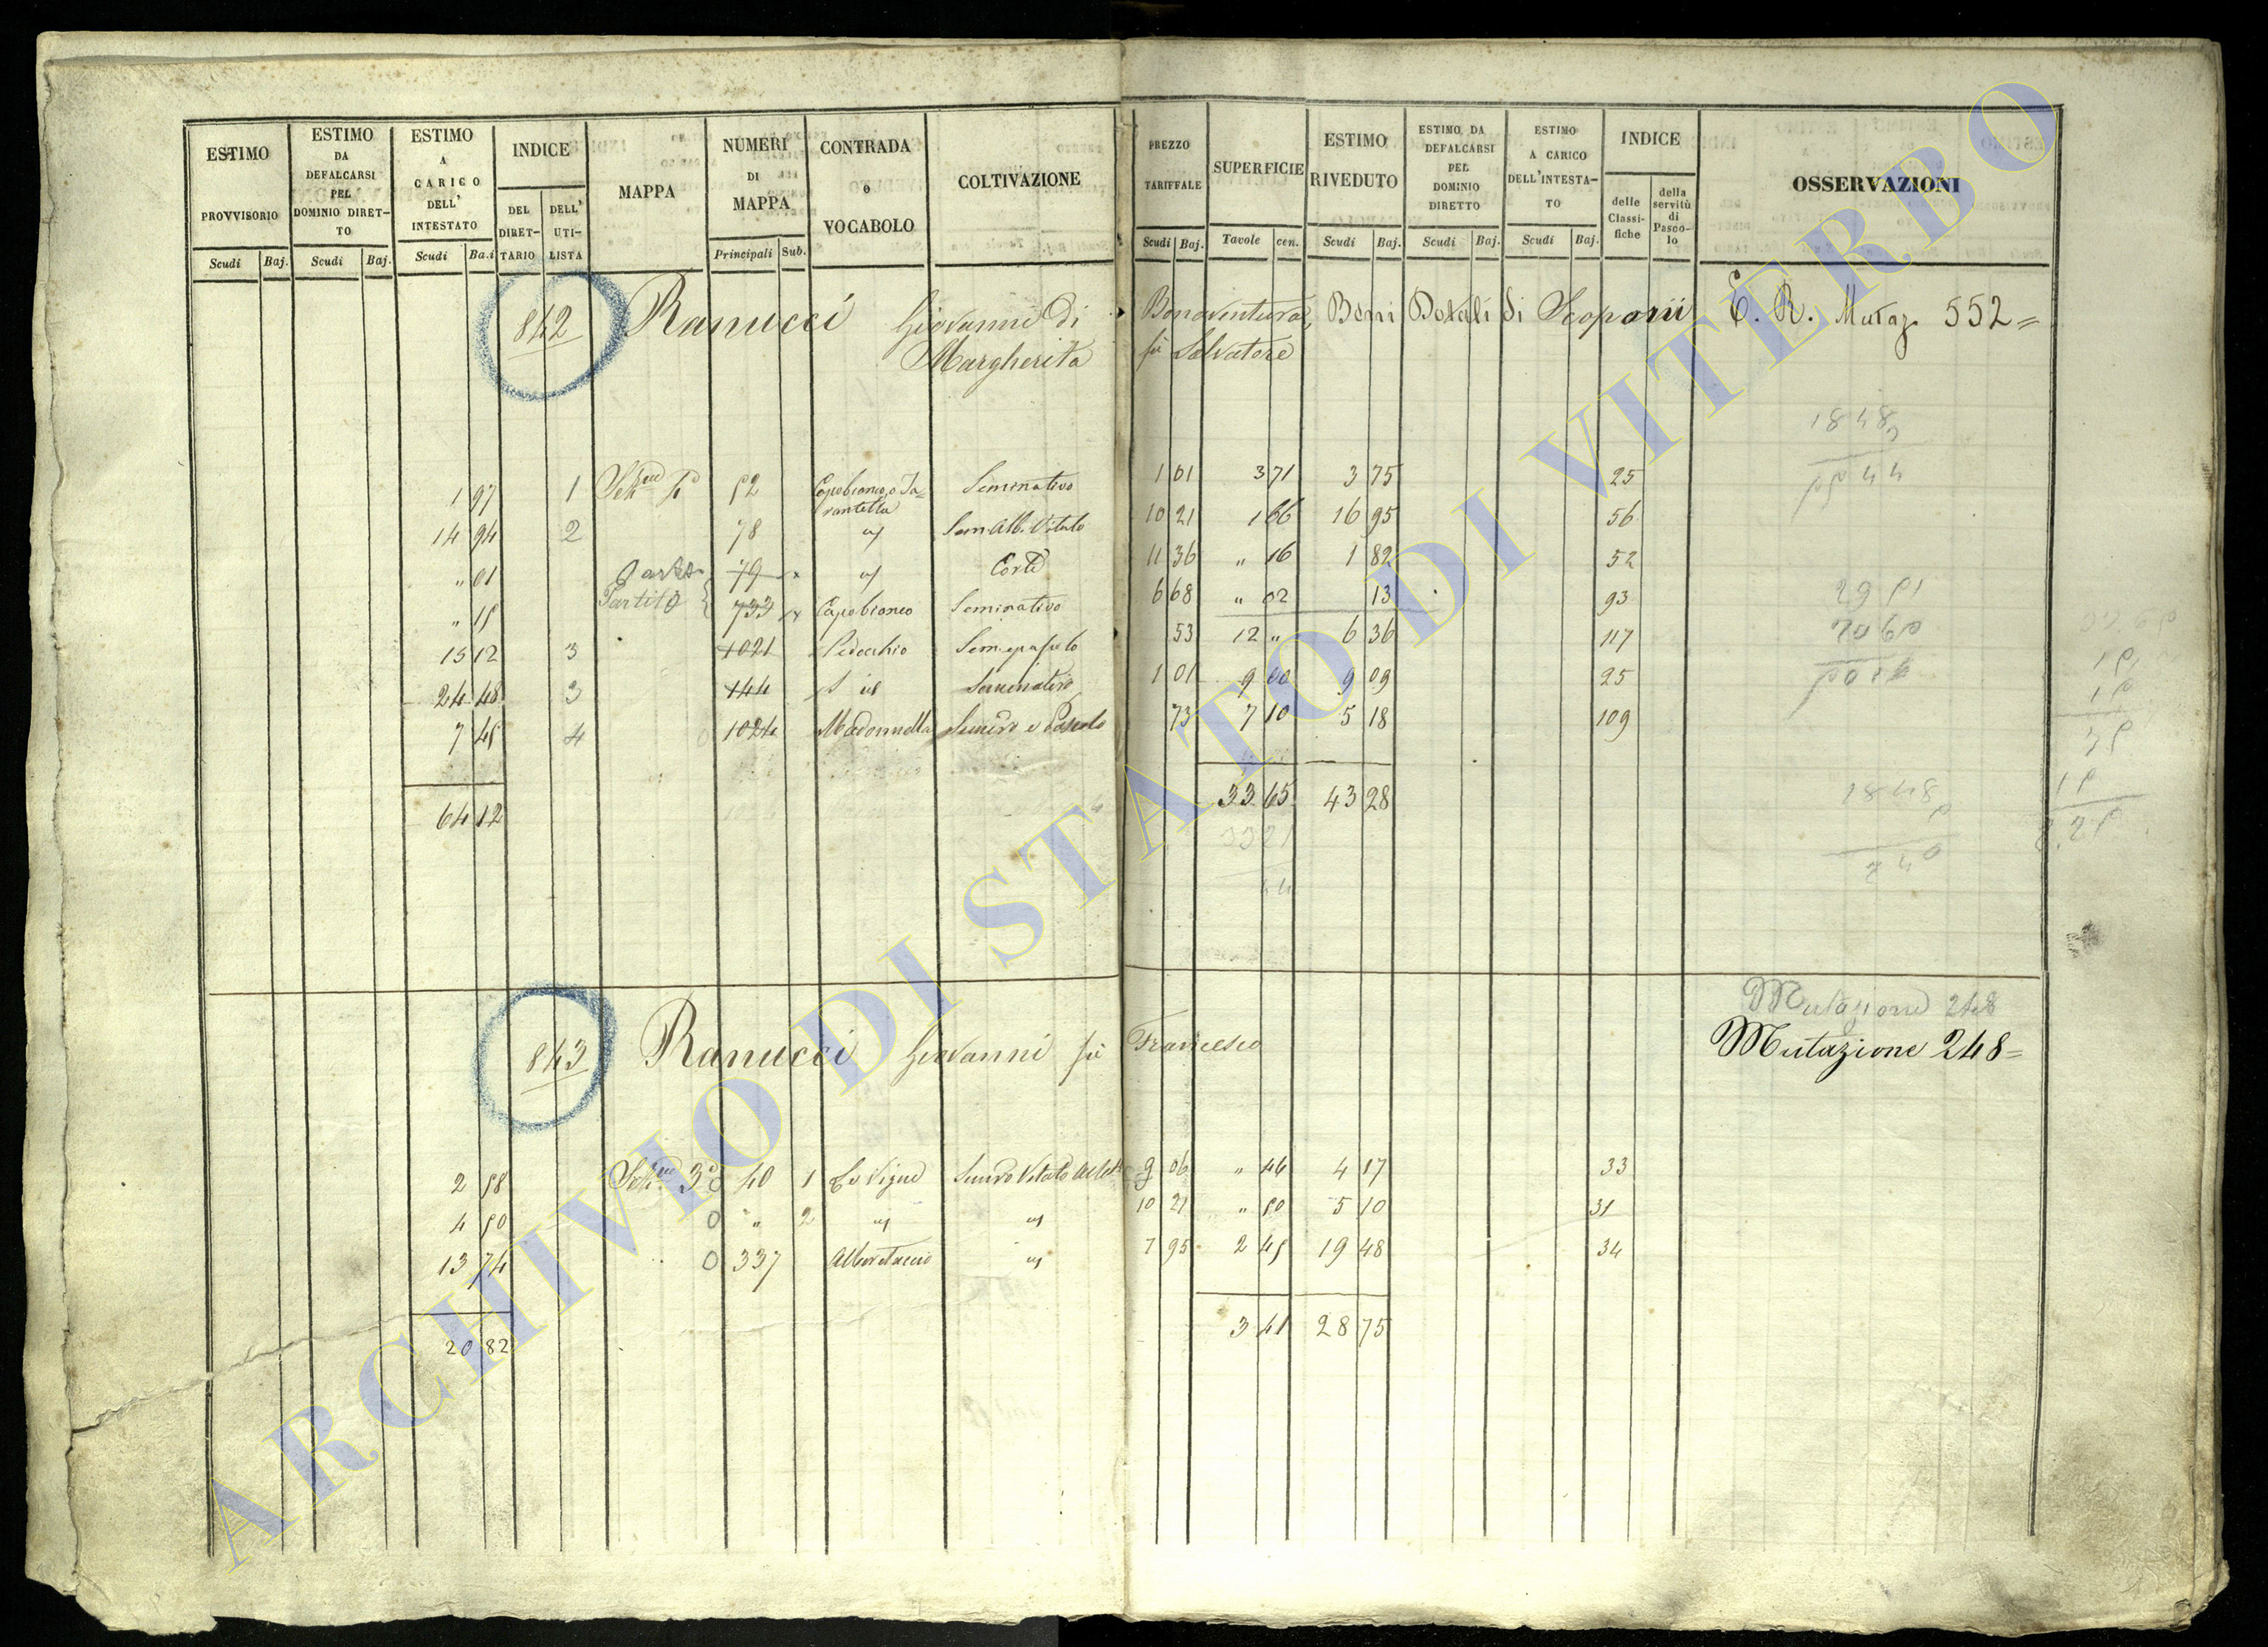 ESTIMO PROVVISORIO Scudi Baj.
ESTIMO DA DEFALCARSI PEL DOMINIO DIRET-TO Scudi Baj.
ESTIMO A CARICO DELL' INTESTATO Scudi Ba.i
INDICE DEL DIRET-TARIO DELL' UTI-LISTA
MAPPA
NUMERI DI MAPPA Principali Sub.
CONTRADA o VOCABOLO
COLTIVAZIONE
PREZZO TARIFFALE Scudi Baj.
SUPERFICIE Tavole cen.
ESTIMO RIVEDUTO Scudi Baj.
ESTIMO DA DEFALCARSI PEL DOMINIO DIRETTO Scudi Baj.
ESTIMO A CARICO DELL'INTESTA-TO Scudi Baj.
INDICE delle Classi-fiche della servitù di Pasco-lo
OSSERVAZIONI
842 Ranucci Giovanni di Bonaventura, Beni Dotali di Scoponi E. R. Mutaz. 552=
Margherita fù Salvatore
1 97 1 52 Capobianco, o Ta=rantella Seminativo 1 01 3 71 3 75 25
14 94 2 78 Sem Alb. Vitato 10 21 1 66 16 95 56
" 01 79 Corte 11 36 " 16 1 82 52
" 15 Partito 733 Capobianco Seminativo 6 68 " 02 13 93
15 12 3 1021 Pidocchio 53 12 " 6 36 117
24 48 3 144 Seminativo 1 01 9 00 9 09 25
7 45 4 1024 Madonnella Semivo e Pascolo 73 7 10 5 18 109
64 12 33 65 43 28
843 Ranucci Giovanni fù Francesco
Mutazione 248
Mutazione 248=
2 58 40 1 Le Vigne 9 06 " 46 4 17 33
4 50 0 " 2 10 21 " 50 5 10 31
13 74 0 337 Alboretaccio 7 95 2 45 19 48 34
20 82 3 41 28 75
ARCHIVIO DI STATO DI VITERBO